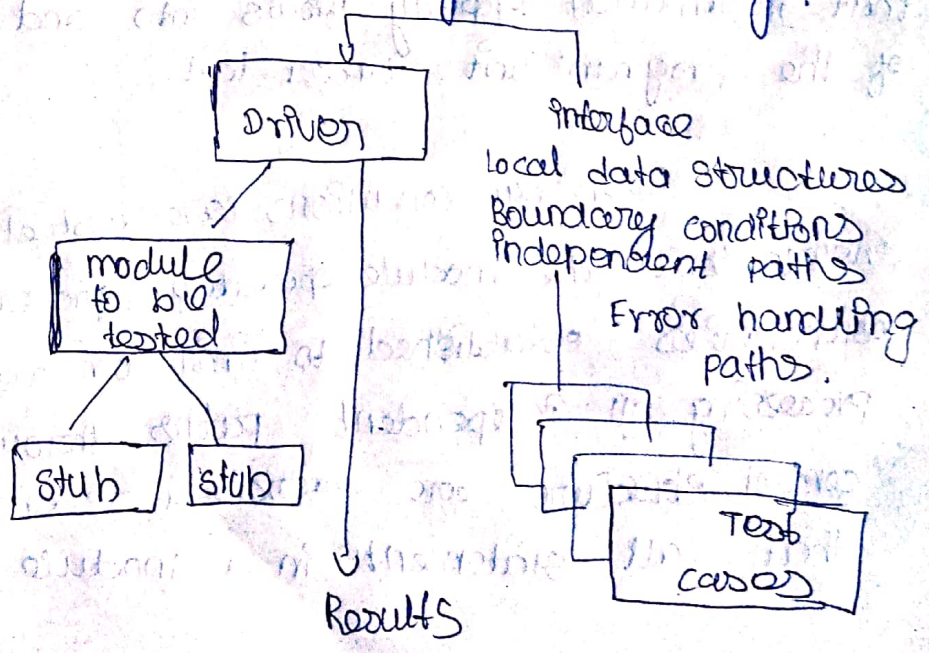 Driver
interface
Local data structures
Boundary conditions
independent paths
Error handling
paths.
module
to be
tested
stub
stub
Test
cases
Results